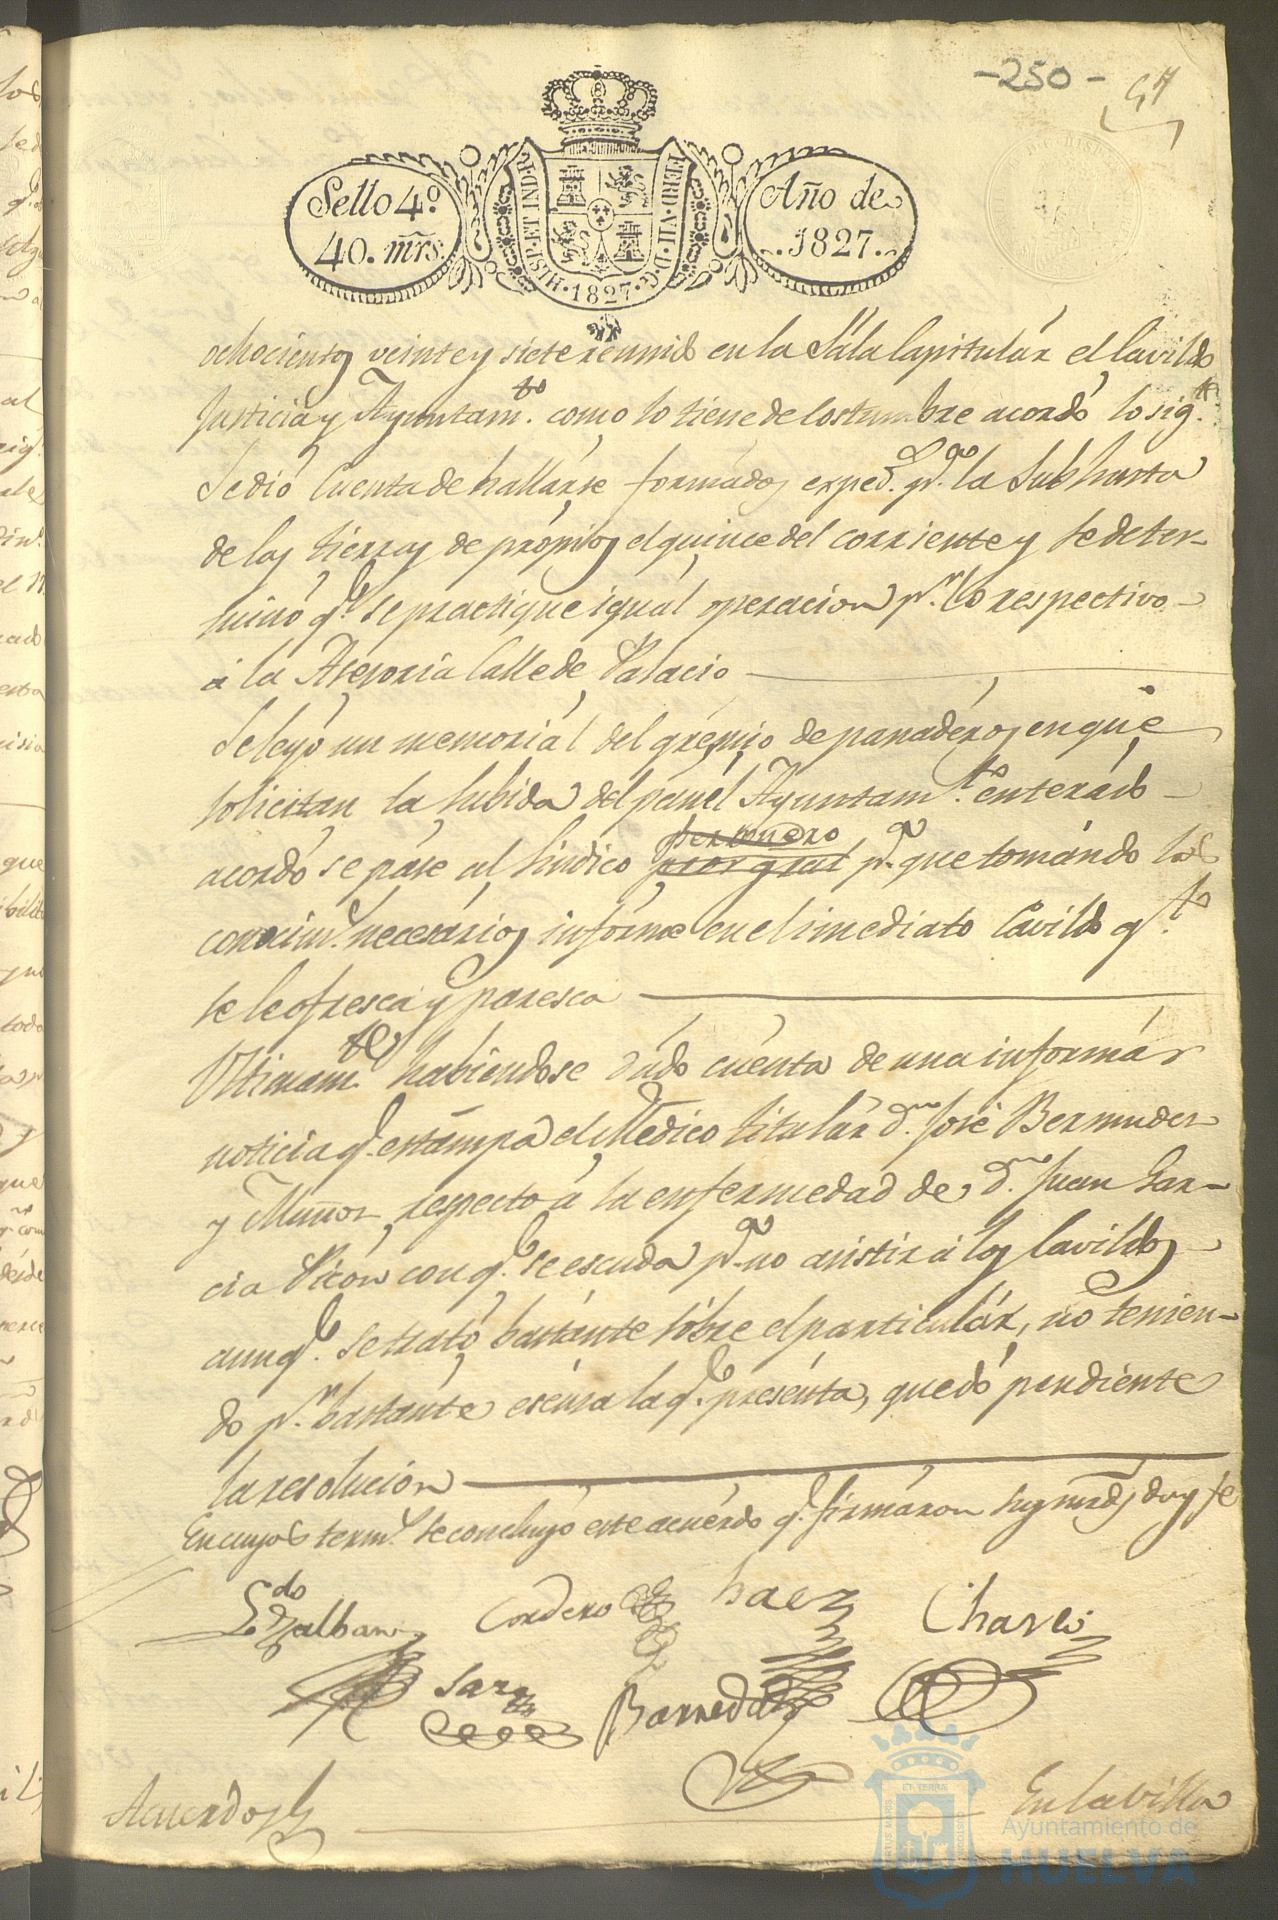 -250-
57
Sello 4º
40. mrs.
HISP. ET IND. R.
FERD. VII. D. G.
·1827·
Año de
1827.
ochocientos veinte y siete reunido en la Sala Capitulár el Cavildo
Justicia y Ayuntam.to como lo tiene de Costumbre acordó lo sig.te
Se dió Cuenta de hallarse formados exped.s p.a la Subhasta
de las tierras de própios el quince del corriente y se deter-
minó q.e se practique igual operacion p.r lo respectivo
á la Asesoria Calle de Palacio
Se leyó un memoriál del grémio de panadéros en que
solicitan la subida del pan él Ayuntam.to enterádo
acordó se páse al Sindico personero p.a que tomándo los
conocim.s necesários informe en el imediato Cavildo q.to
se le ofresca y paresca
Ultimam.te habiéndose dádo cuénta de una informár
noticia q.e estámpa el Médico titulár D.n José Bermudez
y Muñoz respecto á la enfermedad de D.n Juan Gar-
cia Picón con q.e se escuda p.a no asistir á los Cavildos
aunq.e se trató bastánte sóbre el particulár, no tenien-
do p.r bastánte escusa la q.e presénta, quedó pendiente
la resolución
En cuyos term.s se concluyó este acuérdo q.e firmáron sus mrds doy fe
L.do
Cordero
Saez
Chaves
Barreda
Acuerdo
En la villa
Ayuntamiento de
HUELVA